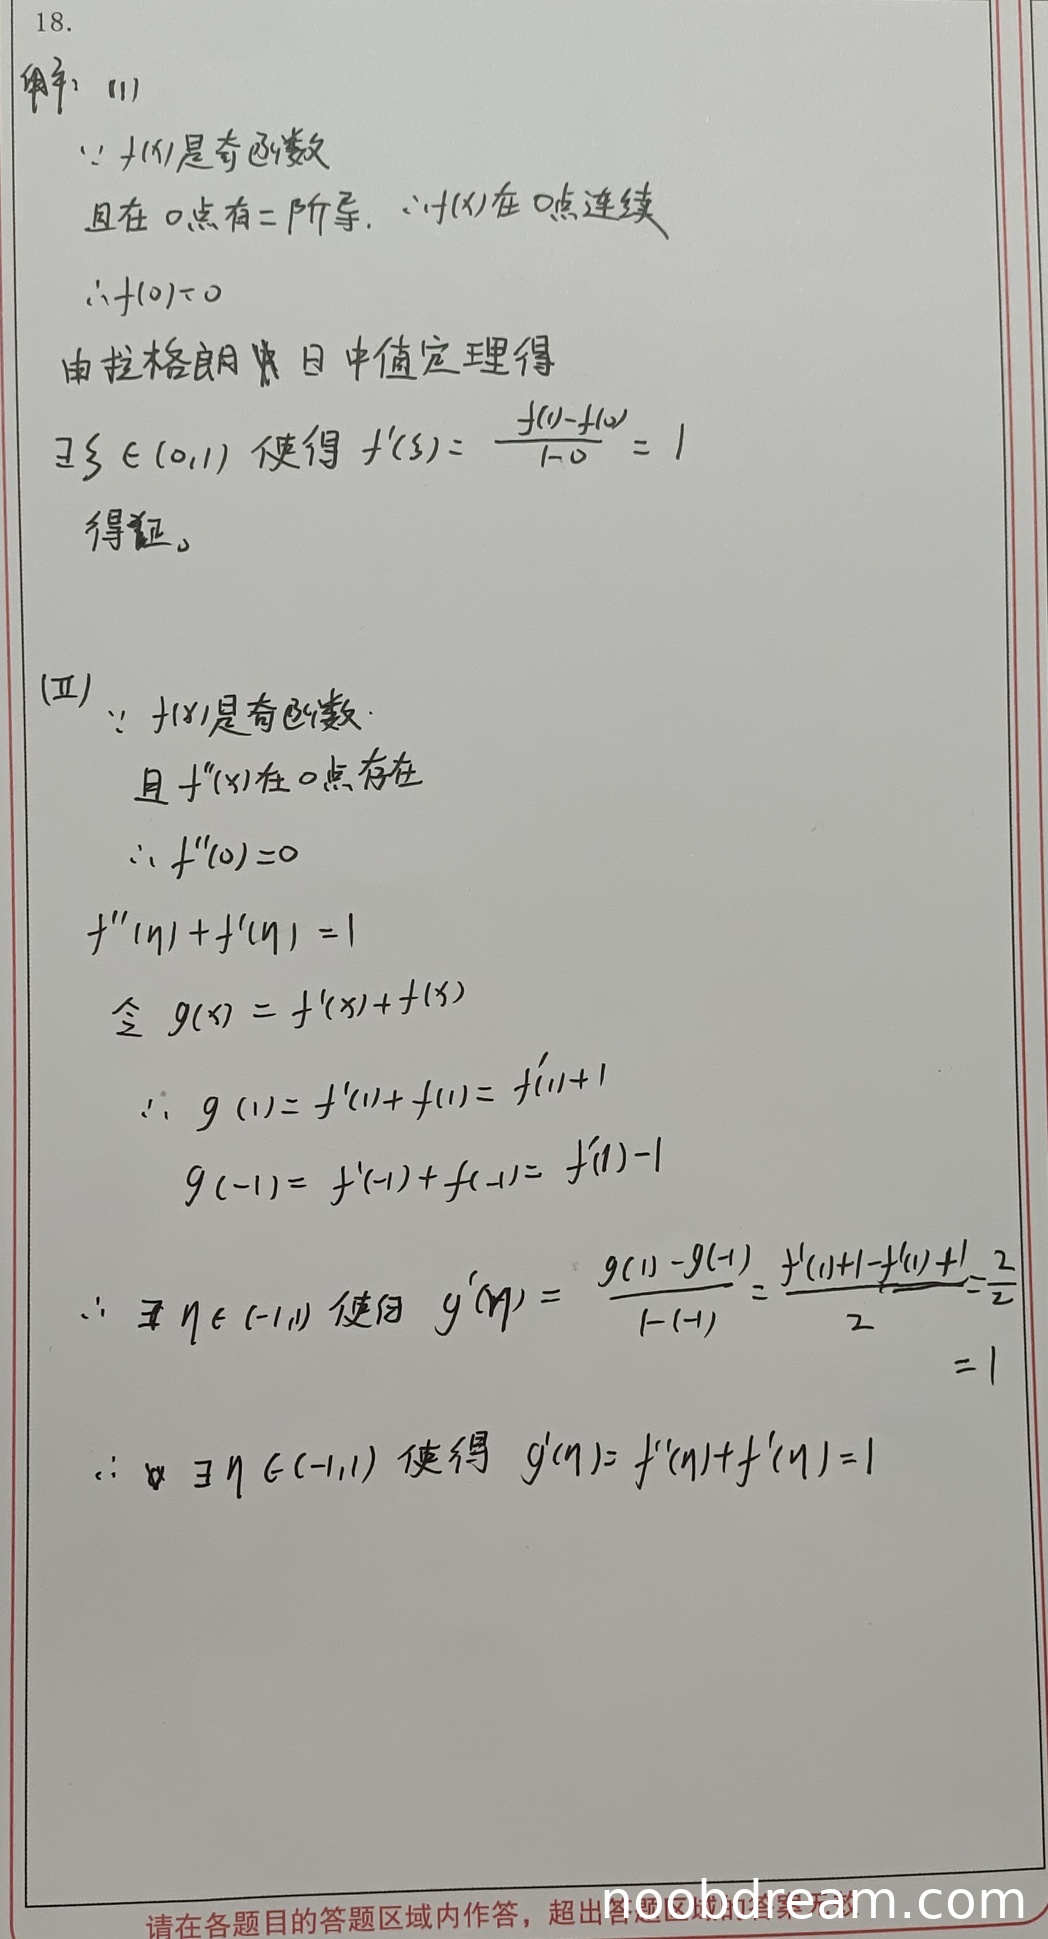 18.
解: (1)
∵ f(x)是奇函数
且在 0点有二阶导. ∴f(x)在 0点连续
∴f(0)=0
由拉格朗日中值定理得
∃ξ∈(0,1) 使得 f'(ξ)= \frac{f(1)-f(0)}{1-0} = 1
得证。
(Ⅱ) ∵ f(x)是奇函数.
且 f''(x)在 0点存在
∴ f''(0)=0
f''(η)+f'(η)=1
令 g(x) = f'(x)+f(x)
∴ g(1)= f'(1)+f(1)= f'(1)+1
g(-1)= f'(-1)+f(-1)= f'(1)-1
∴ ∃ η∈(-1,1) 使得 g'(η) = \frac{g(1)-g(-1)}{1-(-1)} = \frac{f'(1)+1-f'(1)+1}{2} = \frac{2}{2}
=1
∴ ∃ η∈(-1,1) 使得 g'(η)= f''(η)+f'(η)=1
请在各题目的答题区域内作答，超出答题区域的答案无效
noobdream.com